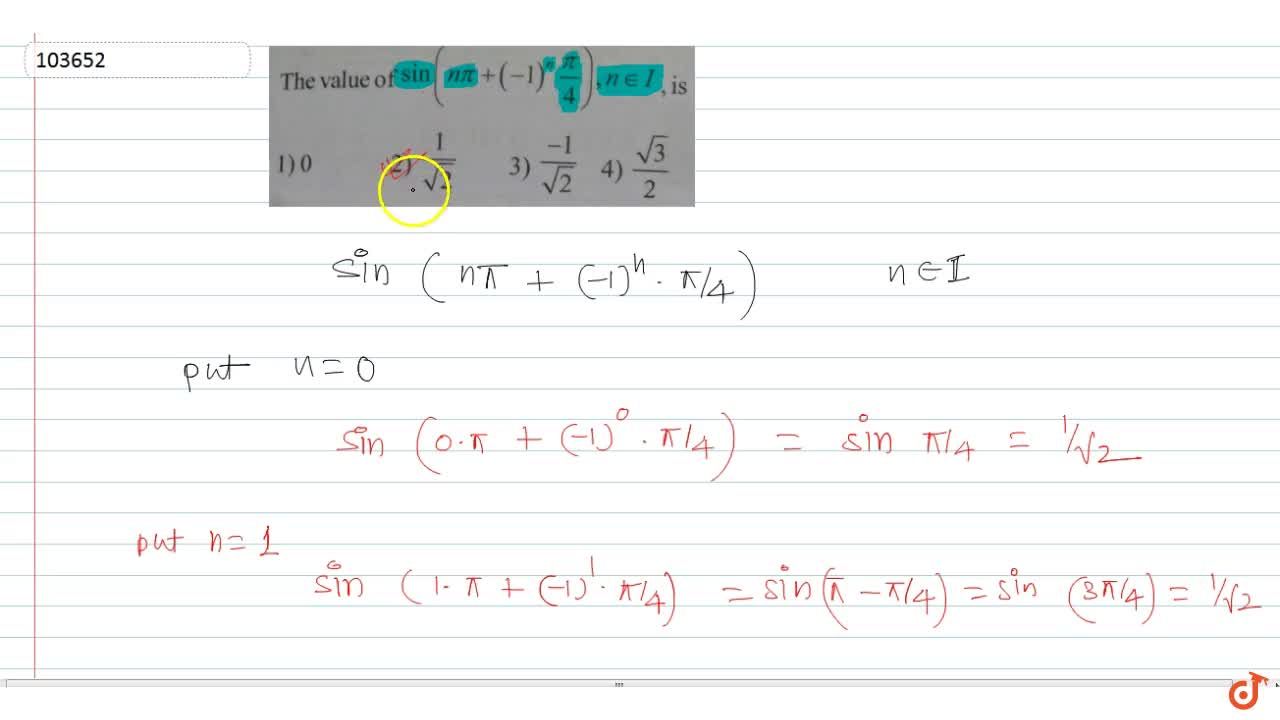 103652
The value of sin(nπ + (-1)^n π/4), n ∈ I, is
1) 0 2) 1/√2 3) -1/√2 4) √3/2
sin (nπ + (-1)^n · π/4) n ∈ I
put n = 0
sin (0·π + (-1)^0 · π/4) = sin π/4 = 1/√2
put n = 1
sin (1·π + (-1)^1 · π/4) = sin(π - π/4) = sin (3π/4) = 1/√2